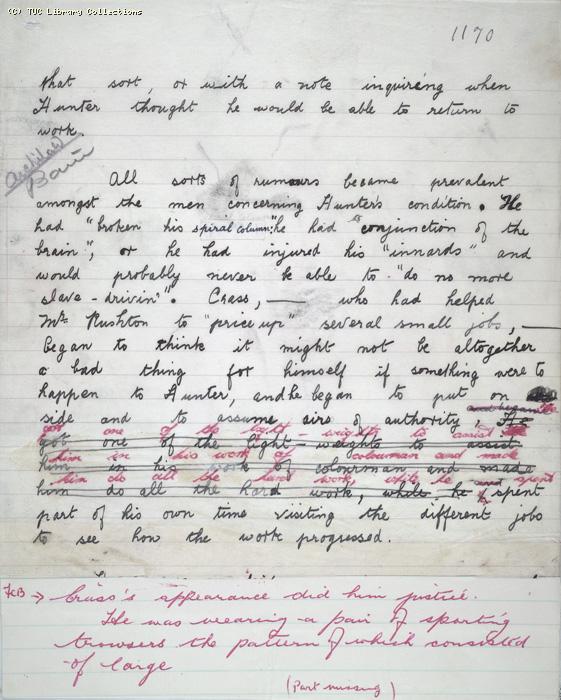 (C) TUC Library Collections
1170
that sort, or with a note inquireing when
Hunter thought he would be able to return to
work.
All sorts of rumours became prevalent
amongst the men concerning Hunter's condition. He
had "broken his spiral column," he had a "conjunction of the
brain", or he had injured his "innards" and
would probably never be able to "do no more
slave-drivin'". Crass, — who had helped
Mr Rushton to "price up" several small jobs, —
began to think it might not be altogether
a bad thing for himself if something were to
happen to Hunter, and he began to put on
side and to assume airs of authority. He
got one of the light-weights to assist
got one of the light-weights to assist
him in his work of colourman and made
him in his work of colourman and made
him do all the hard work, while he spent
him do all the hard work, while he spent
part of his own time visiting the different jobs
to see how the work progressed.
FCB → Crass's appearance did him justice.
He was wearing a pair of sporting
trowsers the pattern of which consisted
of large
(Part missing)